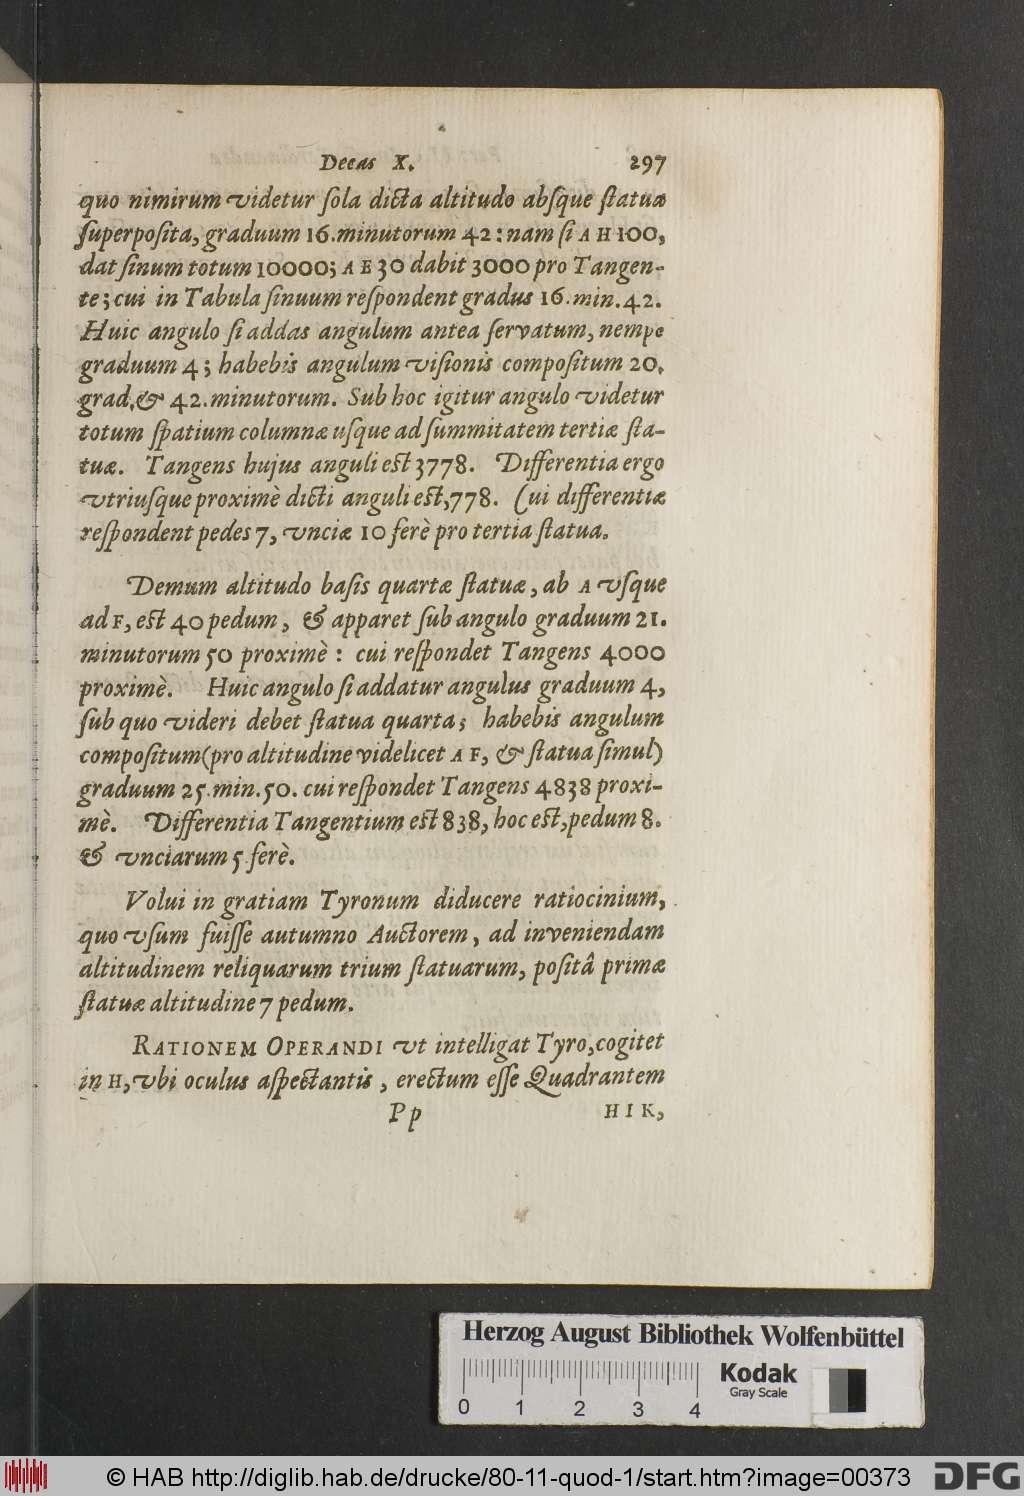 Decas X. 297
quo nimirum videtur ſola dicta altitudo abſque ſtatua
ſuperpoſita, graduum 16.minutorum 42: nam ſi A H 100,
dat ſinum totum 10000; A E 30 dabit 3000 pro Tangen-
te; cui in Tabula ſinuum reſpondent gradus 16. min. 42.
Huic angulo ſi addas angulum antea ſervatum, nempe
graduum 4; habebis angulum viſionis compoſitum 20.
grad. & 42. minutorum. Sub hoc igitur angulo videtur
totum ſpatium columnæ uſque ad ſummitatem tertiæ ſta-
tuæ. Tangens hujus anguli eſt 3778. Differentia ergo
vtriuſque proximè dicti anguli eſt, 778. Cui differentiæ
reſpondent pedes 7, vnciæ 10 ferè pro tertia ſtatua.
Demum altitudo baſis quartæ ſtatuæ, ab A vſque
ad F, eſt 40 pedum, & apparet ſub angulo graduum 21.
minutorum 50 proximè: cui reſpondet Tangens 4000
proximè. Huic angulo ſi addatur angulus graduum 4,
ſub quo videri debet ſtatua quarta; habebis angulum
compoſitum (pro altitudine videlicet A F, & ſtatua ſimul)
graduum 25. min. 50. cui reſpondet Tangens 4838 proxi-
mè. Differentia Tangentium eſt 838, hoc eſt, pedum 8.
& vnciarum 5 ferè.
Volui in gratiam Tyronum diducere ratiocinium,
quo vſum fuiſſe autumno Auctorem, ad inveniendam
altitudinem reliquarum trium ſtatuarum, poſitâ primæ
ſtatuæ altitudine 7 pedum.
RATIONEM OPERANDI vt intelligat Tyro, cogitet
in H, vbi oculus aſpectantis, erectum eſſe Quadrantem
Pp H I K,
Herzog August Bibliothek Wolfenbüttel
0 1 2 3 4
Kodak
Gray Scale
© HAB http://diglib.hab.de/drucke/80-11-quod-1/start.htm?image=00373
DFG